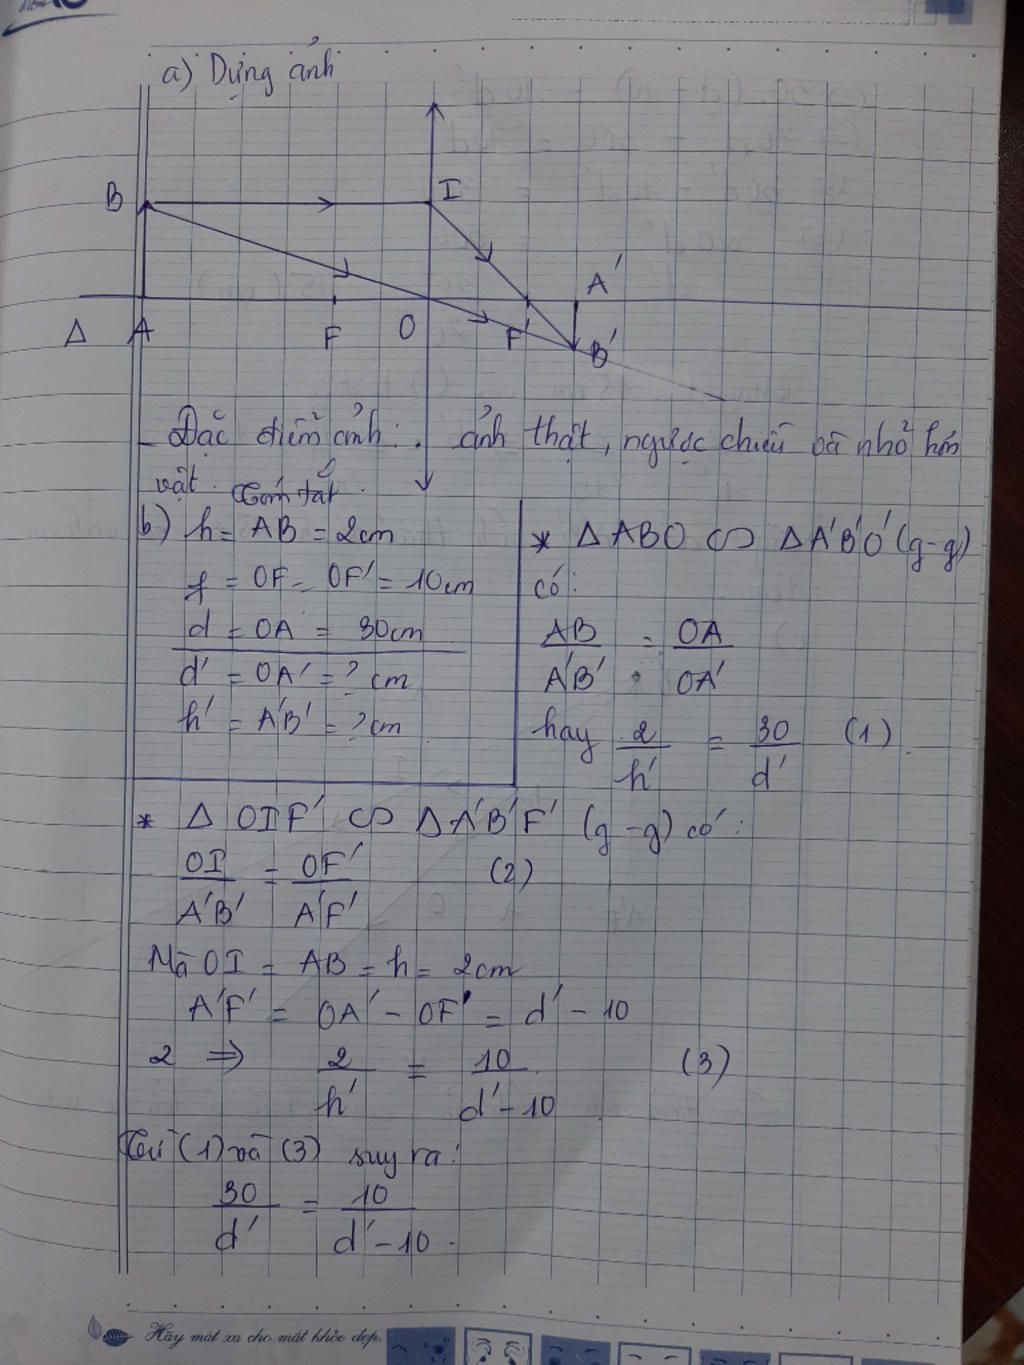 a) Dựng ảnh
B
I
A'
Δ
A
F
O
F'
B'
- Đặc điểm ảnh: . ảnh thật, ngược chiều và nhỏ hơn
vật. Tóm tắt.
b) h = AB = 2cm
f = OF = OF' = 10cm
d = OA = 30cm
d' = OA' = ? cm
h' = A'B' = ? cm
* Δ ABO ∽ Δ A'B'O' (g-g)
có:
AB / A'B' = OA / OA'
hay 2 / h' = 30 / d' (1).
* Δ OIF' ∽ Δ A'B'F' (g-g) có:
OI / A'B' = OF' / A'F' (2)
Mà OI = AB = h = 2cm
A'F' = OA' - OF' = d' - 10
2 ⇒ 2 / h' = 10 / d'-10 (3)
Từ (1) và (3) suy ra:
30 / d' = 10 / d'-10 .
Hãy mát xa cho mắt khỏe đẹp.